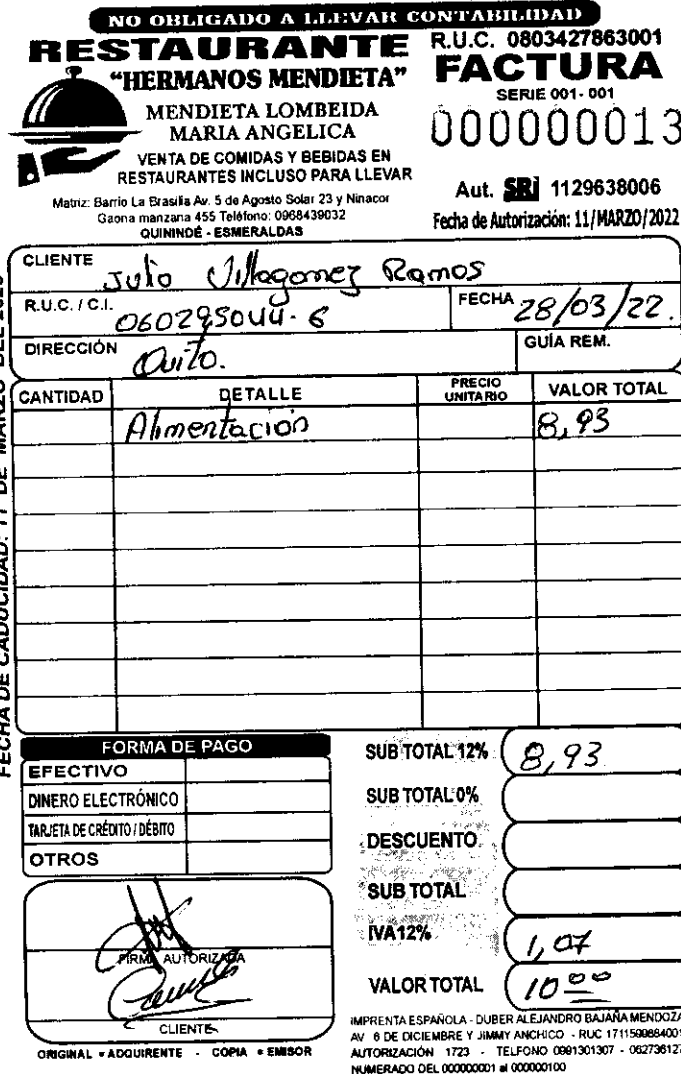 NO OBLIGADO A LLEVAR CONTABILIDAD
RESTAURANTE
"HERMANOS MENDIETA"
MENDIETA LOMBEIDA
MARIA ANGELICA
VENTA DE COMIDAS Y BEBIDAS EN
RESTAURANTES INCLUSO PARA LLEVAR
Matriz: Barrio La Brasilia Av. 5 de Agosto Solar 23 y Ninacor
Gaona manzana 455 Teléfono: 0968439032
QUININDÉ - ESMERALDAS
R.U.C. 0803427863001
FACTURA
SERIE 001-001
000000013
Aut. SRi 1129638006
Fecha de Autorización: 11/MARZO/2022
CLIENTE Julio Villagomez Ramos
R.U.C. / C.I. 060295044-6 FECHA 28/03/22.
DIRECCIÓN Quito. GUÍA REM.
CANTIDAD DETALLE PRECIO UNITARIO VALOR TOTAL
Alimentación 8,93
FECHA DE CADUCIDAD: 11 DE MARZO DEL 2023
FORMA DE PAGO
EFECTIVO
DINERO ELECTRÓNICO
TARJETA DE CRÉDITO / DÉBITO
OTROS
SUB TOTAL 12% 8,93
SUB TOTAL 0%
DESCUENTO
SUB TOTAL
IVA 12% 1,07
VALOR TOTAL 10 00
FIRMA AUTORIZADA
CLIENTE
ORIGINAL = ADQUIRENTE - COPIA = EMISOR
IMPRENTA ESPAÑOLA - DUBER ALEJANDRO BAJAÑA MENDOZA
AV 6 DE DICIEMBRE Y JIMMY ANCHICO - RUC 1711509884001
AUTORIZACIÓN 1723 - TELFONO 0991301307 - 062736127
NUMERADO DEL 000000001 al 000000100